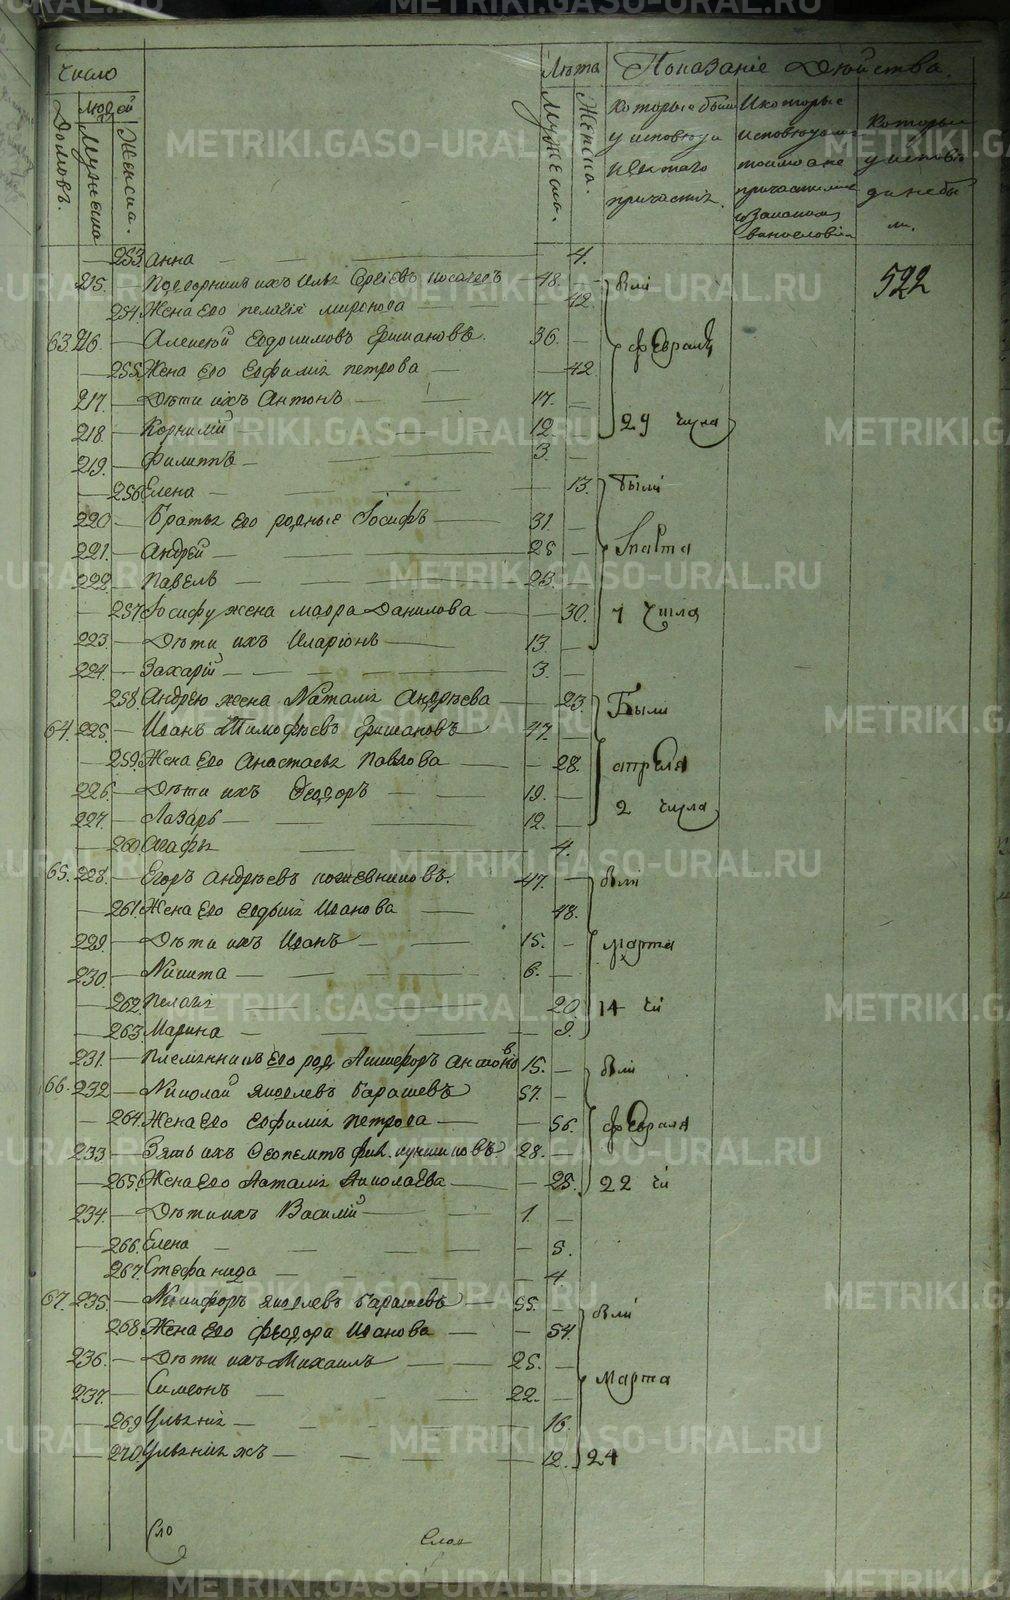 Число
Людей
Домовъ.
Мужеска
Женска.
Лѣта
Мужеск.
Женска.
Показаніе Дѣйства.
Которые были у исповѣди и святаго причастія.
И которые исповѣдались токмо а не причастились и за каким винословіем
Которые у исповѣди не были.
522
253. Анна 4.
215. Подворникъ ихъ Илья Сергѣевъ Косачевъ 48.
254. Жена его Пелагія Миронова 42
63. 216. Алексей Евдокимовъ Гришановъ. 36.
255. Жена его Евфимія Петрова 42
217. Дѣти ихъ Антонъ 17.
218. Корнилій 12.
219. Филиппъ 3.
256. Елена 13.
220 Братья его родные Іосифъ 31.
221. Андрей 25
222. Павелъ 23.
257. Іосифу жена Мавра Данилова 30.
223. Дѣти ихъ Иларіонъ 13.
224. Захарій 3.
258. Андрею жена Наталія Андрѣева 23
64. 225. Иванъ Тимофѣевъ Гришановъ 47.
259. Жена его Анастасья Павлова 28.
226. Дѣти ихъ Ѳеодоръ 19.
227. Лазарь 12.
260 Агафья 4.
65. 228. Егоръ Андрѣевъ 47.
261. Жена его Иванова 48.
229. Дѣти ихъ Иванъ 15.
230. Никита 6.
262. Пелагія 20.
263. Марина 9.
231. Племянникъ его род Никифоръ Антоновъ 15.
66. 232 Николай Яковлевъ Барашевъ 57.
264. Жена его Евфимія Петрова 56.
233 Зять ихъ Ѳеопемптъ 28.
265. Жена его Наталія Николаева 25.
234. Дѣти ихъ Василій 1.
266. Елена 5.
267. Стефанида 4
67. 235. Никифоръ Яковлевъ Барашевъ 55.
268. Жена его Феодора Иванова 54.
236. Дѣти ихъ Михаилъ 25.
237. Симеонъ 22.
269 Ульянія 16.
270. Ульянія жъ 12.
были
февраля
29 числа
были
марта
7 числа
Были
апреля
2 числа
были
марта
14 чи
были
февраля
22 чи
были
марта
24